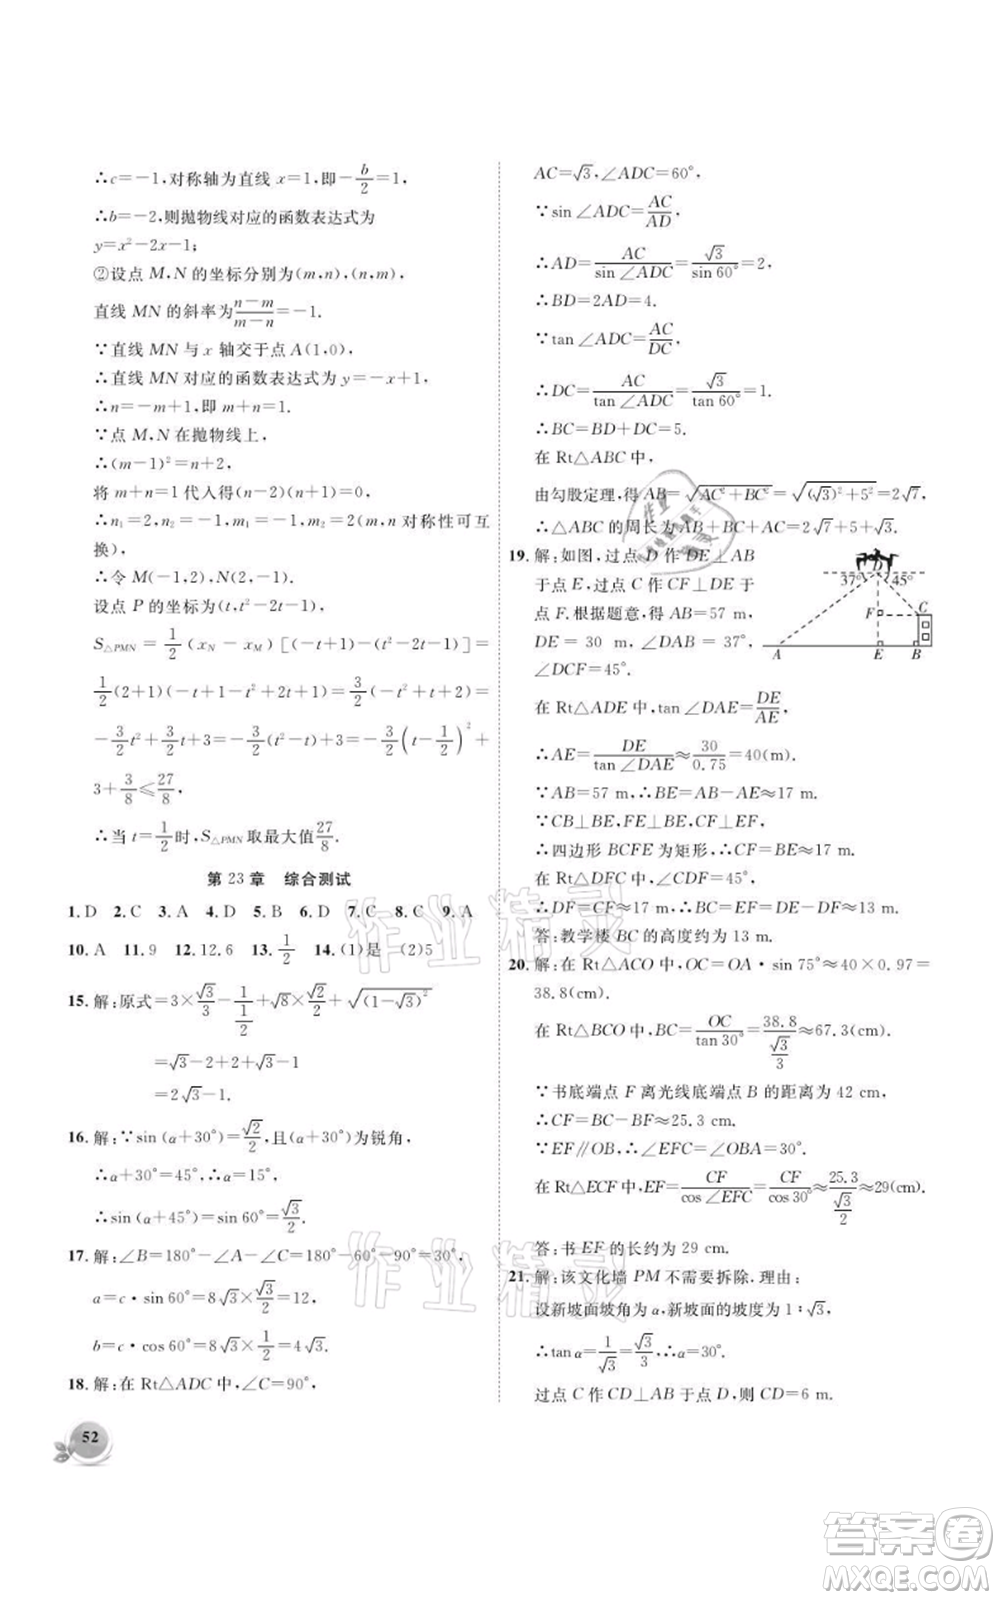 ∴c=−1,对称轴为直线 x=1,即−b/2=1,
∴b=−2,则抛物线对应的函数表达式为
y=x²−2x−1;
②设点 M,N 的坐标分别为(m,n),(n,m),
直线 MN 的斜率为(n−m)/(m−n)=−1.
∵直线 MN 与 x 轴交于点 A(1,0),
∴直线 MN 对应的函数表达式为 y=−x+1,
∴n=−m+1,即 m+n=1.
∵点 M,N 在抛物线上,
∴(m−1)²=n+2,
将 m+n=1 代入得(n−2)(n+1)=0,
∴n₁=2,n₂=−1,m₁=−1,m₂=2(m,n 对称性可互
换),
∴令 M(−1,2),N(2,−1).
设点 P 的坐标为(t,t²−2t−1),
S△PMN=1/2(xN−xM)[(−t+1)−(t²−2t−1)]=
1/2(2+1)(−t+1−t²+2t+1)=3/2(−t²+t+2)=
−3/2t²+3/2t+3=−3/2(t²−t)+3=−3/2(t−1/2)²+
3+3/8≤27/8,
∴当 t=1/2时,S△PMN取最大值27/8.
第 23 章 综合测试
1. D 2. C 3. A 4. D 5. B 6. D 7. C 8. C 9. A
10. A 11. 9 12. 12.6 13. 1/2 14. (1)是 (2)5
15. 解:原式=3×√3/3−1/(1/2)+√8×√2/2+√((1−√3)²)
=√3−2+2+√3−1
=2√3−1.
16. 解:∵sin(α+30°)=√2/2,且(α+30°)为锐角,
∴α+30°=45°,∴α=15°.
∴sin(α+45°)=sin 60°=√3/2.
17. 解:∠B=180°−∠A−∠C=180°−60°−90°=30°,
a=c·sin 60°=8√3×√3/2=12,
b=c·cos 60°=8√3×1/2=4√3.
18. 解:在 Rt△ADC 中,∠C=90°,
52
AC=√3,∠ADC=60°,
∵sin ∠ADC=AC/AD,
∴AD=AC/sin ∠ADC=√3/sin 60°=2,
∴BD=2AD=4.
∵tan ∠ADC=AC/DC,
∴DC=AC/tan ∠ADC=√3/tan 60°=1.
∴BC=BD+DC=5.
在 Rt△ABC 中,
由勾股定理,得 AB=√(AC²+BC²)=√((√3)²+5²)=2√7,
∴△ABC 的周长为 AB+BC+AC=2√7+5+√3.
19. 解:如图,过点 D 作 DE⊥AB
于点 E,过点 C 作 CF⊥DE 于
点 F.根据题意,得 AB=57 m,
DE=30 m,∠DAB=37°,
∠DCF=45°.
37° D 45°
F C
A E B
在 Rt△ADE 中,tan∠DAE=DE/AE,
∴AE=DE/tan ∠DAE≈30/0.75=40(m).
∵AB=57 m,∴BE=AB−AE≈17 m.
∵CB⊥BE,FE⊥BE,CF⊥EF,
∴四边形 BCFE 为矩形,∴CF=BE≈17 m.
在 Rt△DFC 中,∠CDF=∠DCF=45°,
∴DF=CF=17 m,∴BC=EF=30−17=13(m).
答:教学楼 BC 的高度约为 13 m.
20. 解:在 Rt△ACO 中,OC=OA·sin 75°≈40×0.97=
38.8(cm).
在 Rt△BCO 中,BC=OC/tan 30°=38.8/(√3/3)≈67.3(cm).
∵书底端点 F 离光线底端点 B 的距离为 42 cm,
∴CF=BC−BF≈25.3 cm.
∵EF∥OB,∴∠EFC=∠OBA=30°.
在 Rt△ECF 中,EF=CF/cos ∠EFC=CF/cos 30°≈25.3/(√3/2)≈29(cm).
答:书 EF 的长约为 29 cm.
21. 解:该文化墙 PM 不需要拆除,理由:
设新坡面坡角为 α,新坡面的坡度为 1∶√3,
∴tan α=1/√3=√3/3,∴α=30°.
过点 C 作 CD⊥AB 于点 D,则 CD=6 m.
作业精灵
作业精灵
答案圈
MXQE.COM